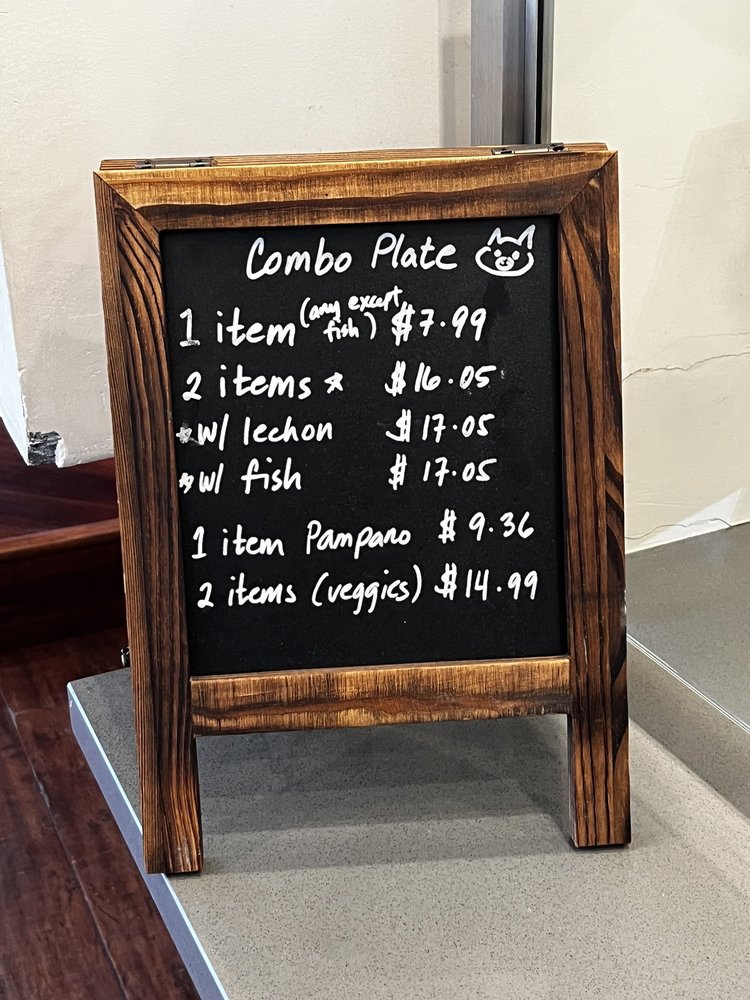 Combo Plate
1 item (any except fish) $7.99
2 items ☆ $16.05
☆ w/ lechon $17.05
☆ w/ fish $17.05
1 item Pampano $9.36
2 items (veggies) $14.99